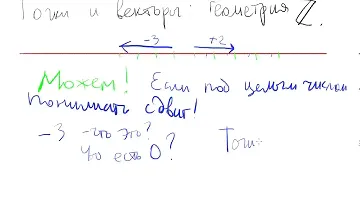 Точки и векторы. Геометрия ℤ.
-3 +2
Можем! Если под целым числом
понимать сдвиг!
-3 - что это?
Что есть 0? Точ